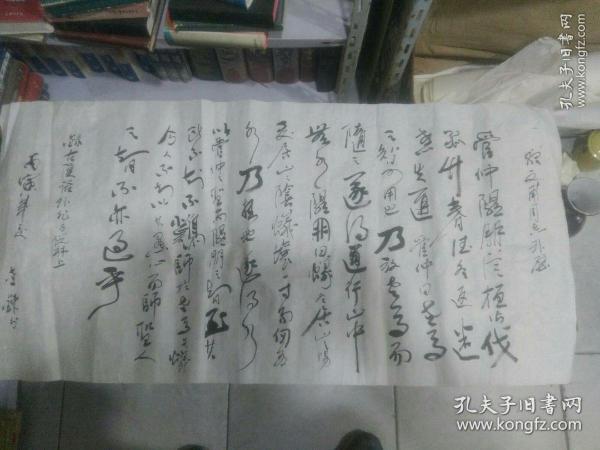 管仲隰朋从桓公伐
孤竹春往冬返迷
惑失道管仲曰老馬
之智可用也乃放老馬而
隨之遂得道行山中
無水隰朋曰蟻冬居山之陽
夏居山之陰蟻壤一寸而仞有
水乃掘地遂得水
以管仲之聖而隰朋之智至其
所不知不難師於老馬与蟻
今人不知以其愚心而師聖人
之智不亦過乎
孔夫子旧书网
www.kongfz.com
孔夫子旧书网
www.kongfz.com